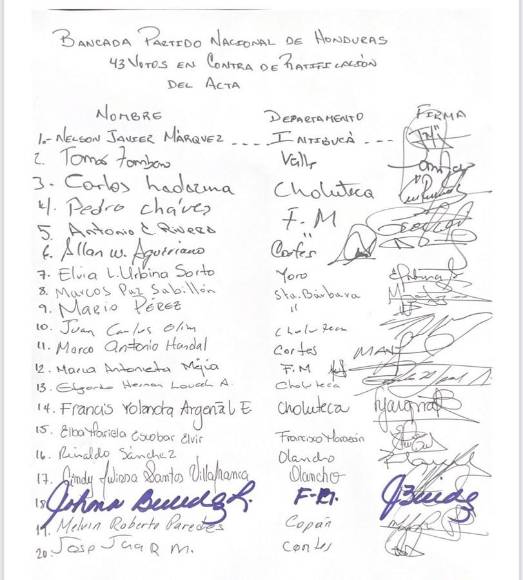 BANCADA PARTIDO NACIONAL DE HONDURAS
43 VOTOS EN CONTRA DE RATIFICACIÓN
DEL ACTA
NOMBRE DEPARTAMENTO FIRMA
1.- NELSON JAVIER MÁRQUEZ ---- INTIBUCÁ ---
2. Tomas Zambrano Valle
3. Carlos Ledezma Choluteca
4. Pedro Cháves F.M
5. Antonio C Rivera "
6. Allan W. Cortés
7. Elvia L. Urbina Sorto Yoro
8. Marcos Paz Sabillón Sta. Bárbara
9. MARIO PÉREZ "
10. Juan Carlos Olim Choluteca
11. Marco Antonio Handal Cortes
12. Maria Antonieta Mejia F.M
13. Hernan A. Choluteca
14. Francis Yolanda Argeñal E Choluteca
15. Elba Escobar Elvir Francisco Morazán
16. Reinaldo Sánchez Olancho
17. Cindy Juliana Santos Villafranca Olancho
18. Johana F.M.
19. Melvin Roberto Paredes Copán
20. M. Cortes